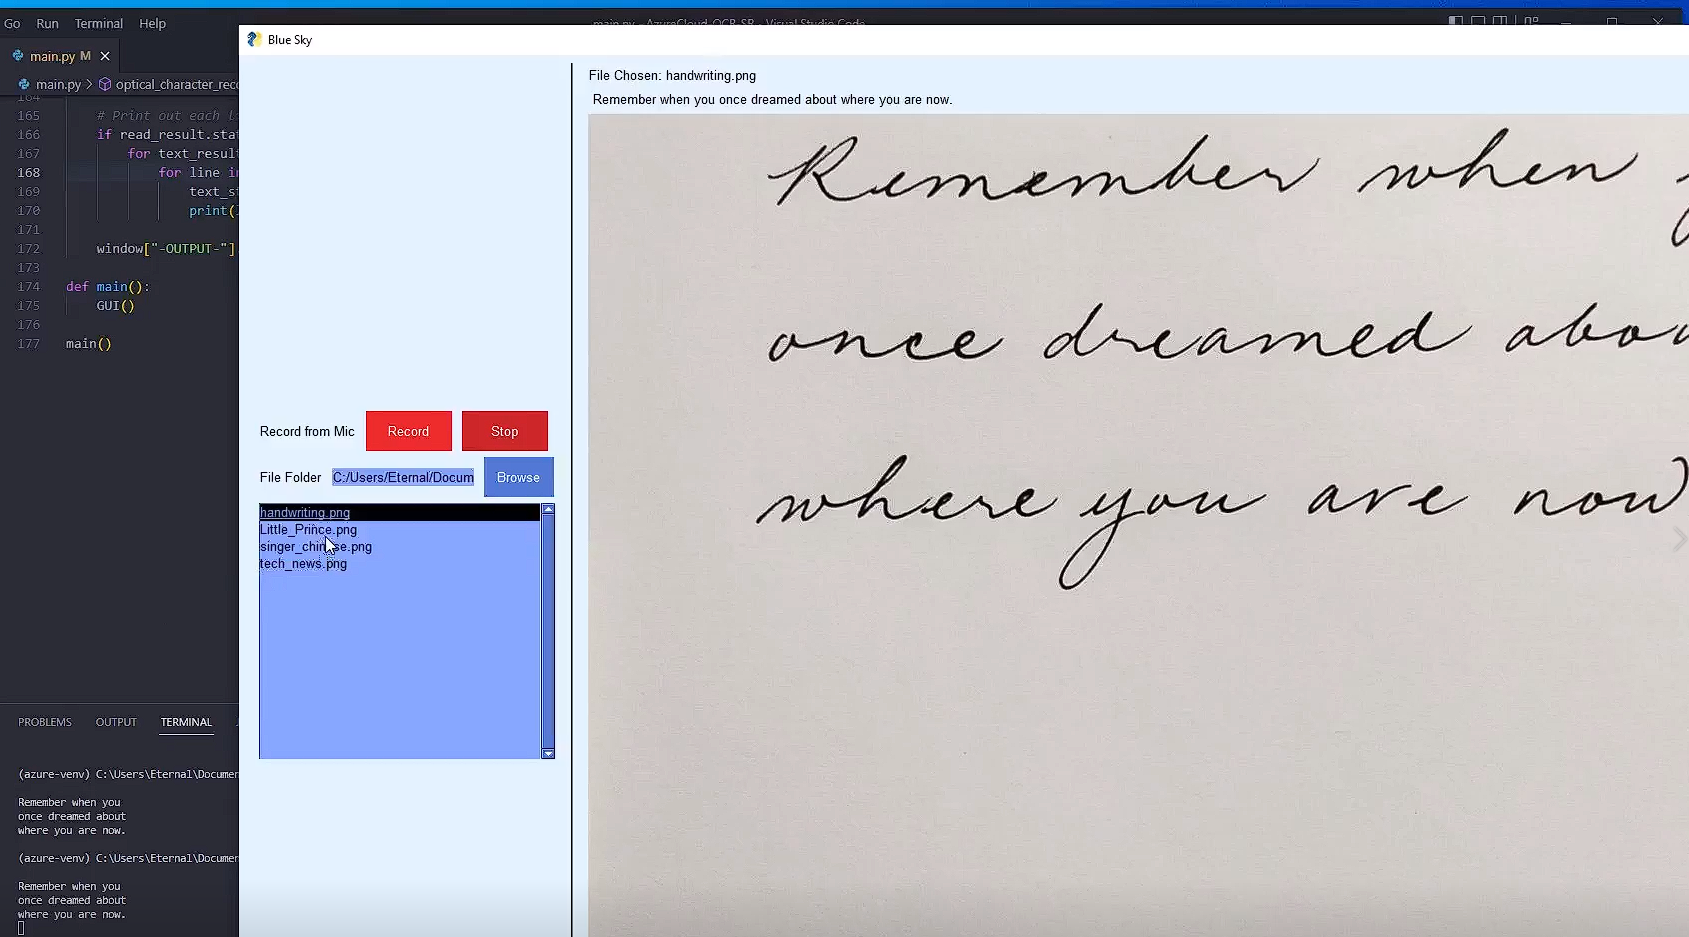 Go Run Terminal Help
main.py - AzureCloud-OCR-SR - Visual Studio Code
main.py M
Blue Sky
main.py > optical_character_reco
164
165 # Print out each l
166 if read_result.stat
167 for text_result
168 for line in
169 text_st
170 print(
171
172 window["-OUTPUT-"]
173
174 def main():
175 GUI()
176
177 main()
File Chosen: handwriting.png
Remember when you once dreamed about where you are now.
Remember when y
once dreamed abou
where you are now
Record from Mic Record Stop
File Folder C:/Users/Eternal/Docum Browse
handwriting.png
Little_Prince.png
singer_chinese.png
tech_news.png
PROBLEMS OUTPUT TERMINAL
(azure-venv) C:\Users\Eternal\Documen
Remember when you
once dreamed about
where you are now.
(azure-venv) C:\Users\Eternal\Documen
Remember when you
once dreamed about
where you are now.